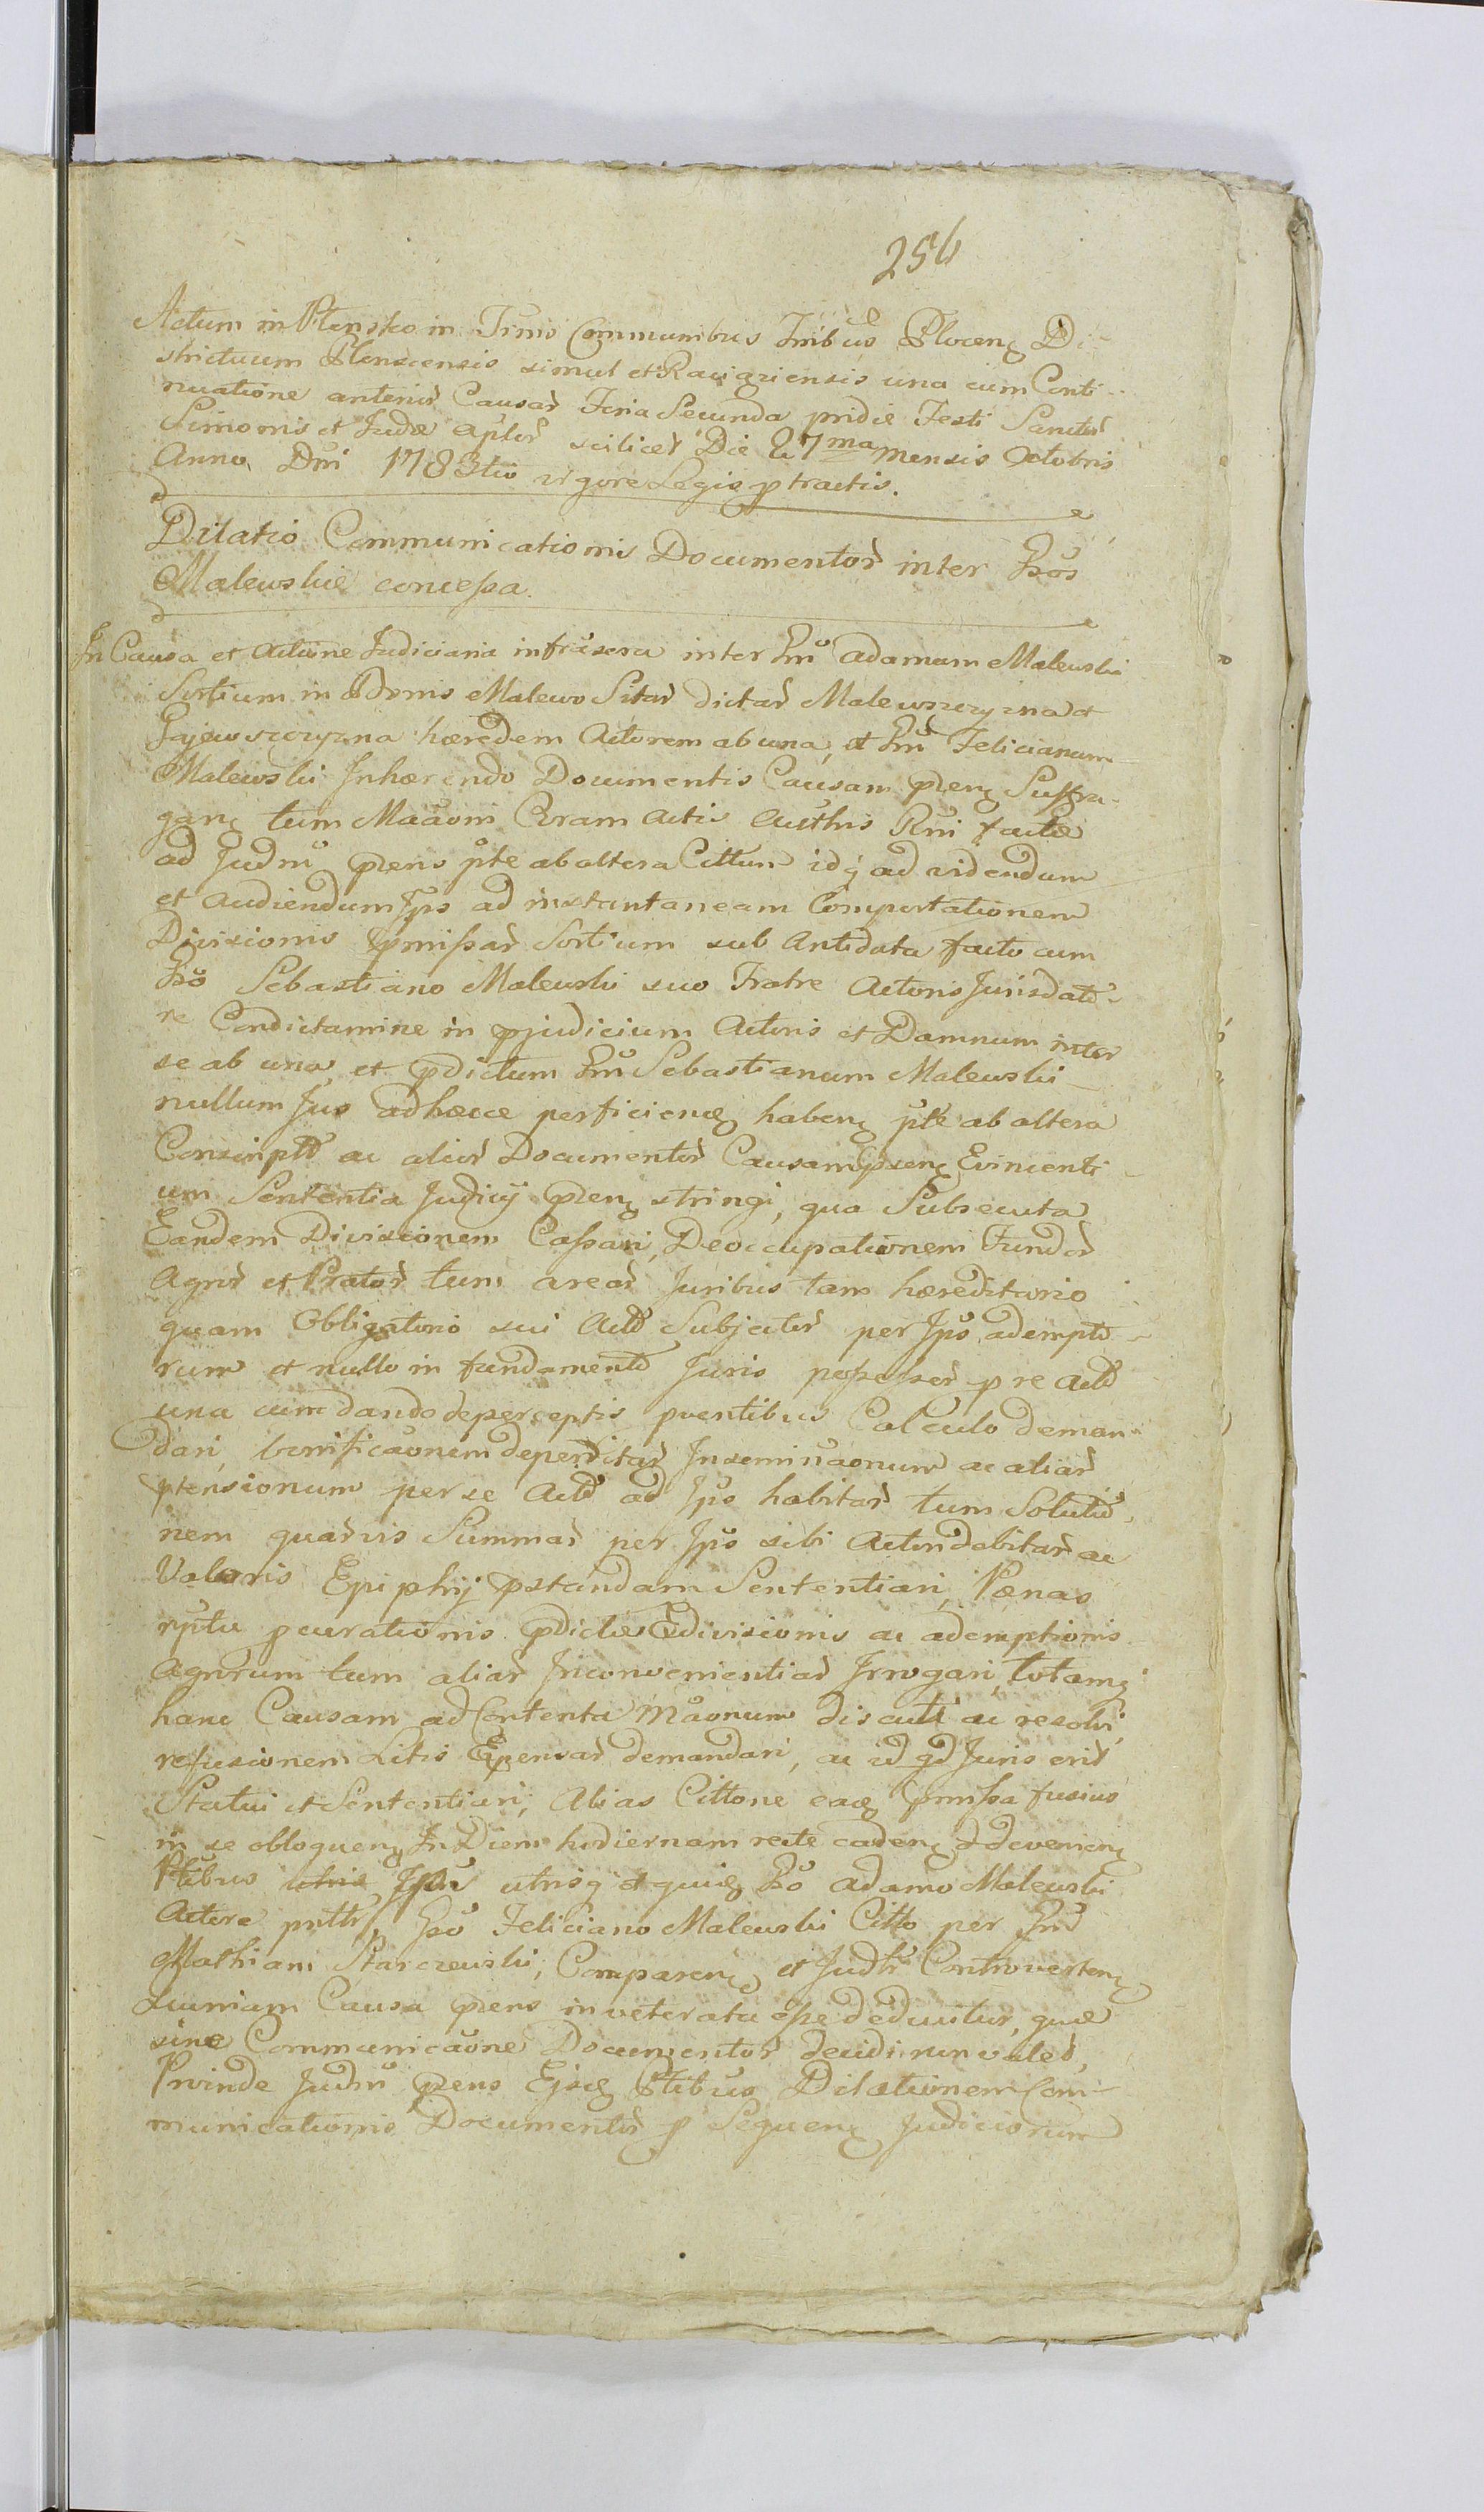 256
Actum in Plonsko in Trnis Communibus Trribus Plocen Di-
strictuum Plonscensis simul et Raciąziensis una cum Conti-
nuatione anterior Causar Feria Secunda pridie Festi Sanctor
Simonis et Judæ Aplor scilicet Die 27ma mensis Octobris
Anno Dni 1783tio vigore Legis ptractis.
Dilatio Communicationis Documentor inter Gsos
Malewskie concessa.
In Causa et Actione Judiciaria infrascra inter Gnm Adamum Malewski
Sortium in Bonis Malewo Sitar dictar Malewszczyzna et
Gajewszczyzna hæredem Actorem ab una, et Gnm Felicianum
Malewski Inhærendo Documentis Causam pten Suffra-
gan tum Maãoni Coram Actis Authis Rni factæ
ad Judm ptens pte ab altera Cittum idq ad videndum
et Audiendum Ips ad instantaneam Comportationem
Divisionis pmissar Sortium sub Antidata facto cum
Gso Sebastiano Malewski suo Fratre Actoris Jurisdato-
re Condictamine in pjudicium Actoris et Damnum inter
se ab una, et pdictum Gnm Sebastianum Malewski
nullum Jus ad hæcce perficien haben pte ab altera
Conscripto ac alior Documentor Causam pten Evincenti-
um Sententia Judicij pten stringi, qua Subsecuta
Eandem Divisionem Cassari, Deoccupationem Fundor
Agror et Prator tum arear Juribus tam hæreditario
quam Obligatorio sui Act Subjector per Ips adempto-
rum et nullo in fundamento Juris possessor p re Act
una cum dando de perceptis pventibus Calculo deman-
dari, bonificaonem deperditar Inseminaonum ac aliar
ptensionum per se Act ad Ips habitar tum Solutio-
nem quarvis Summar per Ips sibi Actori debitar ac
Valoris Epiphij pstandam Sententiari, Pænas
rptu pcurationis pdictæ divisionis ac ademptionis
Agrorum tum aliar Inconvenientiar Irrogari, totamq
hanc Causam ad Contenta Maonum discuti ac resolvi,
refusionem Litis Expensar demandari, ac id qd Juris erit
Statui et Sententiari, Alias Cittone eaq pmissa fusius
in se obloquen In Diem hodiernam recte caden et devenien
Ptibus utrisq et quid Gso Adamo Malewski
Actore pntte, Gso Feliciano Malewski Citto per Gnd
Mathiam Starczewski, Comparen et Judtr Controverten
Quoniam Causa ptens inveterata esse deducitur, quæ
sine Communicaone Documentor decidi non valet,
Proinde Judm ptens Ejsd Ptibus Dilationem Com-
municationis Documentor p Sequen Judiciorum